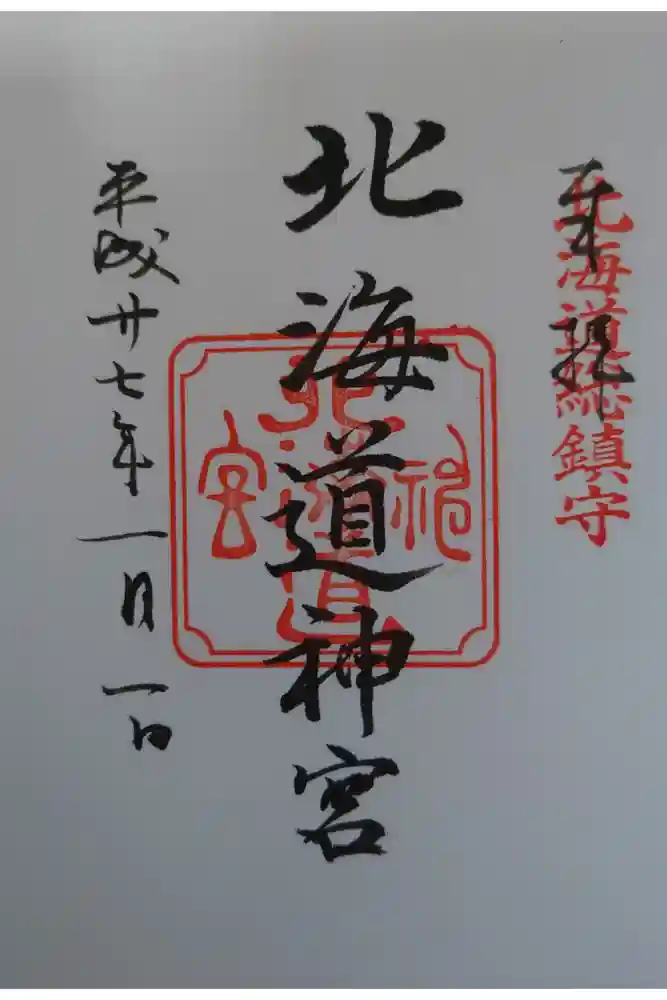 奉拝
北海道総鎮守
北海道神宮
北海道神宮
平成廿七年一月一日